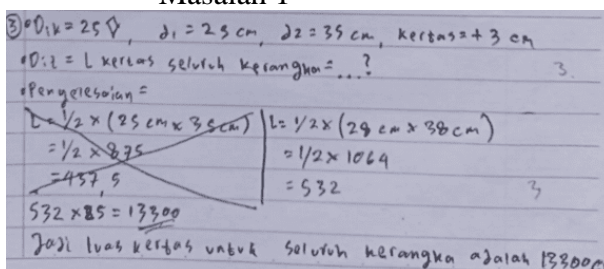 Masalah 1
③ • Dik = 25 ◊, d1 = 25 cm, d2 = 35 cm, kertas = + 3 cm
• Dit = L kertas seluruh kerangka = ...? 3.
• Penyelesaian =
L = 1/2 × (25 cm × 35 cm) L = 1/2 × (28 cm × 38 cm)
= 1/2 × 875 = 1/2 × 1064
= 437,5 = 532 3
532 × 25 = 13300
Jadi luas kertas untuk seluruh kerangka adalah 13300